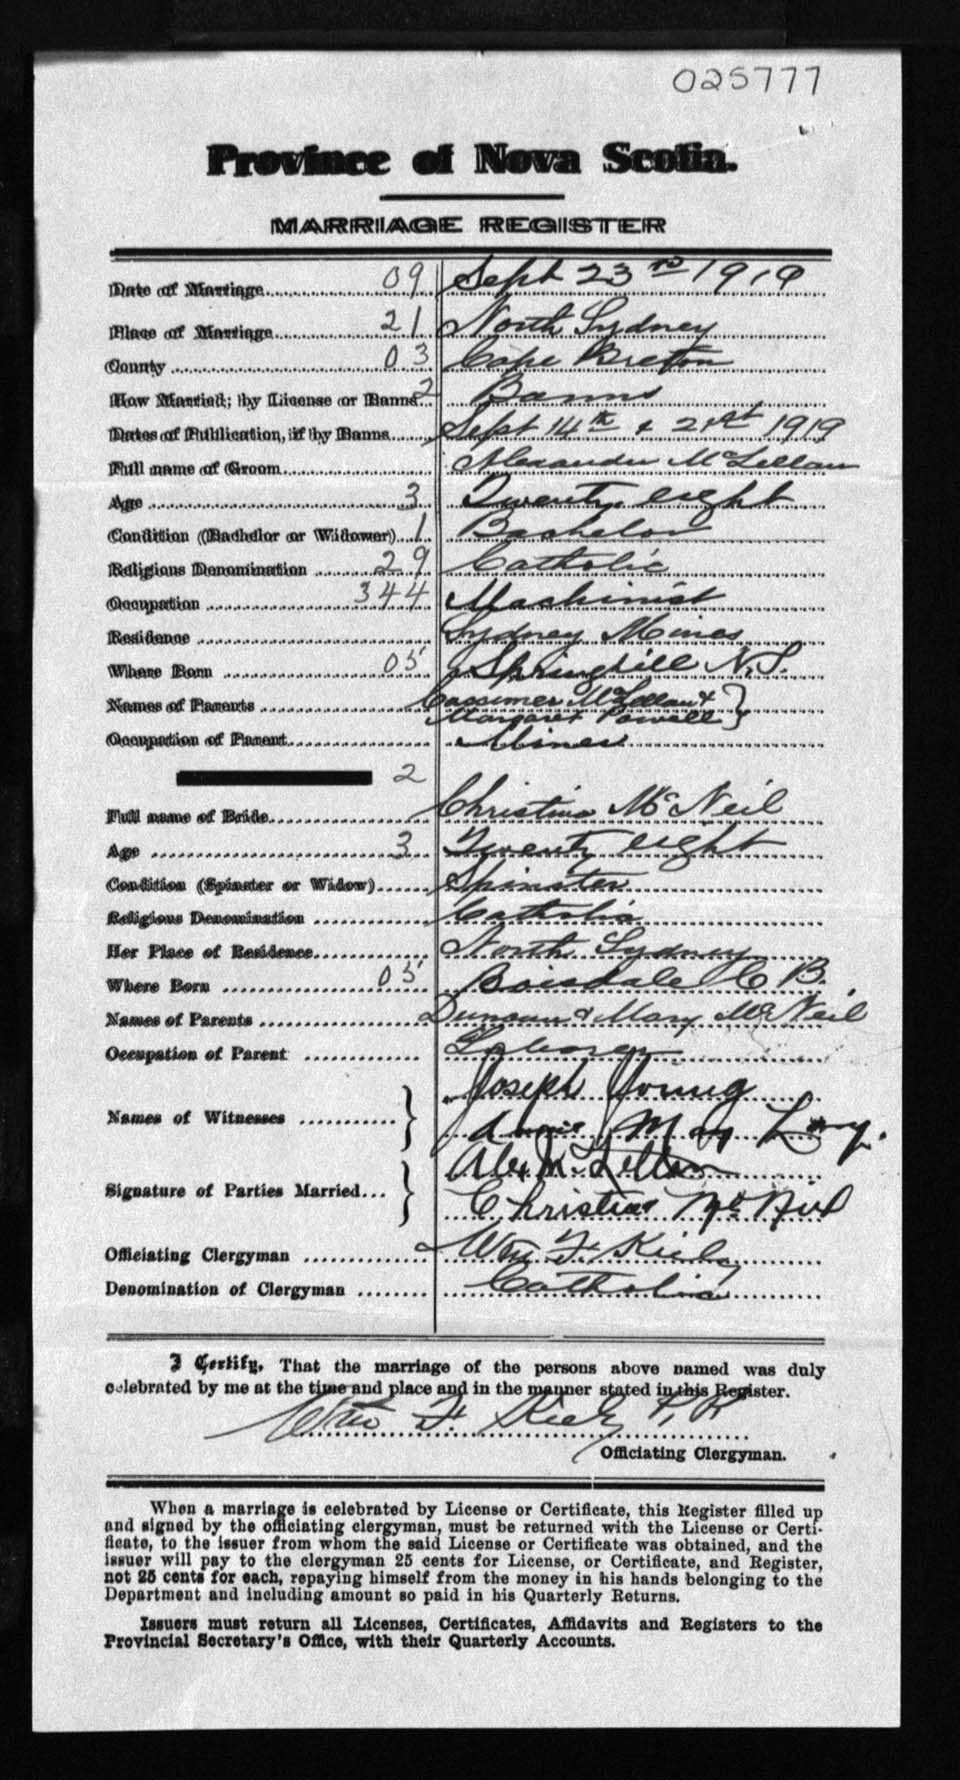 025777
Province of Nova Scotia.
MARRIAGE REGISTER
Date of Marriage 09 Sept 23rd 1919
Place of Marriage 21 North Sydney
County 03 Cape Breton
How Married; by License or Banns 2 Banns
Dates of Publication, if by Banns Sept 14th & 21st 1919
Full name of Groom Alexander McLellan
Age 3 Twenty eight
Condition (Bachelor or Widower) 1 Bachelor
Religious Denomination 29 Catholic
Occupation 344 Machinist
Residence Sydney Mines
Where Born 05 Springhill N.S.
Names of Parents Cassimer McLellan &
Margaret Powell }
Occupation of Parent Miner
2
Full name of Bride Christina McNeil
Age 3 Twenty eight
Condition (Spinster or Widow) Spinster
Religious Denomination Catholic
Her Place of Residence North Sydney
Where Born 05 Boisdale C B.
Names of Parents Duncan & Mary McNeil
Occupation of Parent Laborer
Names of Witnesses } Joseph Young
Annie May
Signature of Parties Married } Alex McLellan
Christina McNeil
Officiating Clergyman Wm F. Kiely
Denomination of Clergyman Catholic
I Certify, That the marriage of the persons above named was duly
celebrated by me at the time and place and in the manner stated in this Register.
Wm F. Kiely P.P.
Officiating Clergyman.
When a marriage is celebrated by License or Certificate, this Register filled up
and signed by the officiating clergyman, must be returned with the License or Certi-
ficate, to the issuer from whom the said License or Certificate was obtained, and the
issuer will pay to the clergyman 25 cents for License, or Certificate, and Register,
not 25 cents for each, repaying himself from the money in his hands belonging to the
Department and including amount so paid in his Quarterly Returns.
Issuers must return all Licenses, Certificates, Affidavits and Registers to the
Provincial Secretary's Office, with their Quarterly Accounts.